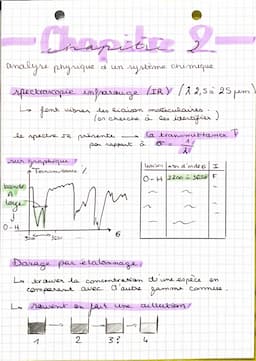 Chapitre 2
analyse physique d'un système chimique
spectroscopie infrarouge (IR) (λ 2,5 à 25 μm)
↳ font vibrer les liaison moléculaires
(on cherche à les identifier)
le spectre se présente → la transmittance T
par rapport à σ = 1/λ
sur graphique
Transmittance %
bande
large
↓
O-H
σ
liaison | nbr d'onde σ | I
O-H | 3200 à 3650 | F
Dosage par étalonnage
↳ trouver la concentration d'une espèce en
comparant avec d'autre gamme connue.
↳ souvent on fait une dilution
1 2 3? 4